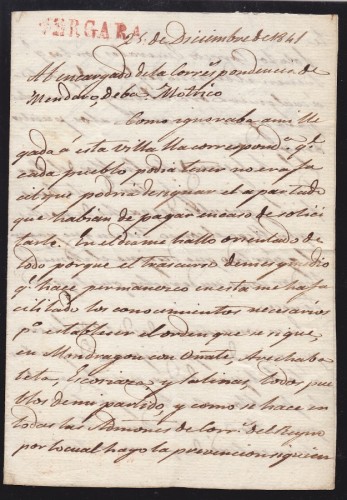 VERGARA
26 de Diciembre de 1841
Al encargado de la Correspondencia de
Mendaro, Deba. Motrico
Como ignoraba a mi lle
gada a esta Villa la correspond.ª q.e
cada pueblo podia tener no era fa
cil que podria designar el apartado
que habian de pagar en caso de solici
tarlo. En el dia me hallo orientado de
todo porque el trascurso de mes y medio
q.e hace permanezco en esta me ha fa
cilitado los conocimientos necesarios
p.ª establecer el orden que se sigue
en Mondragon con Oñate, Arechaba
leta, Escoriaza y Salinas, todos pue
blos de mi partido, y como se hace en
todas las Admones de Corr.s del Reyno
por lo cual hago la prevencion siguien